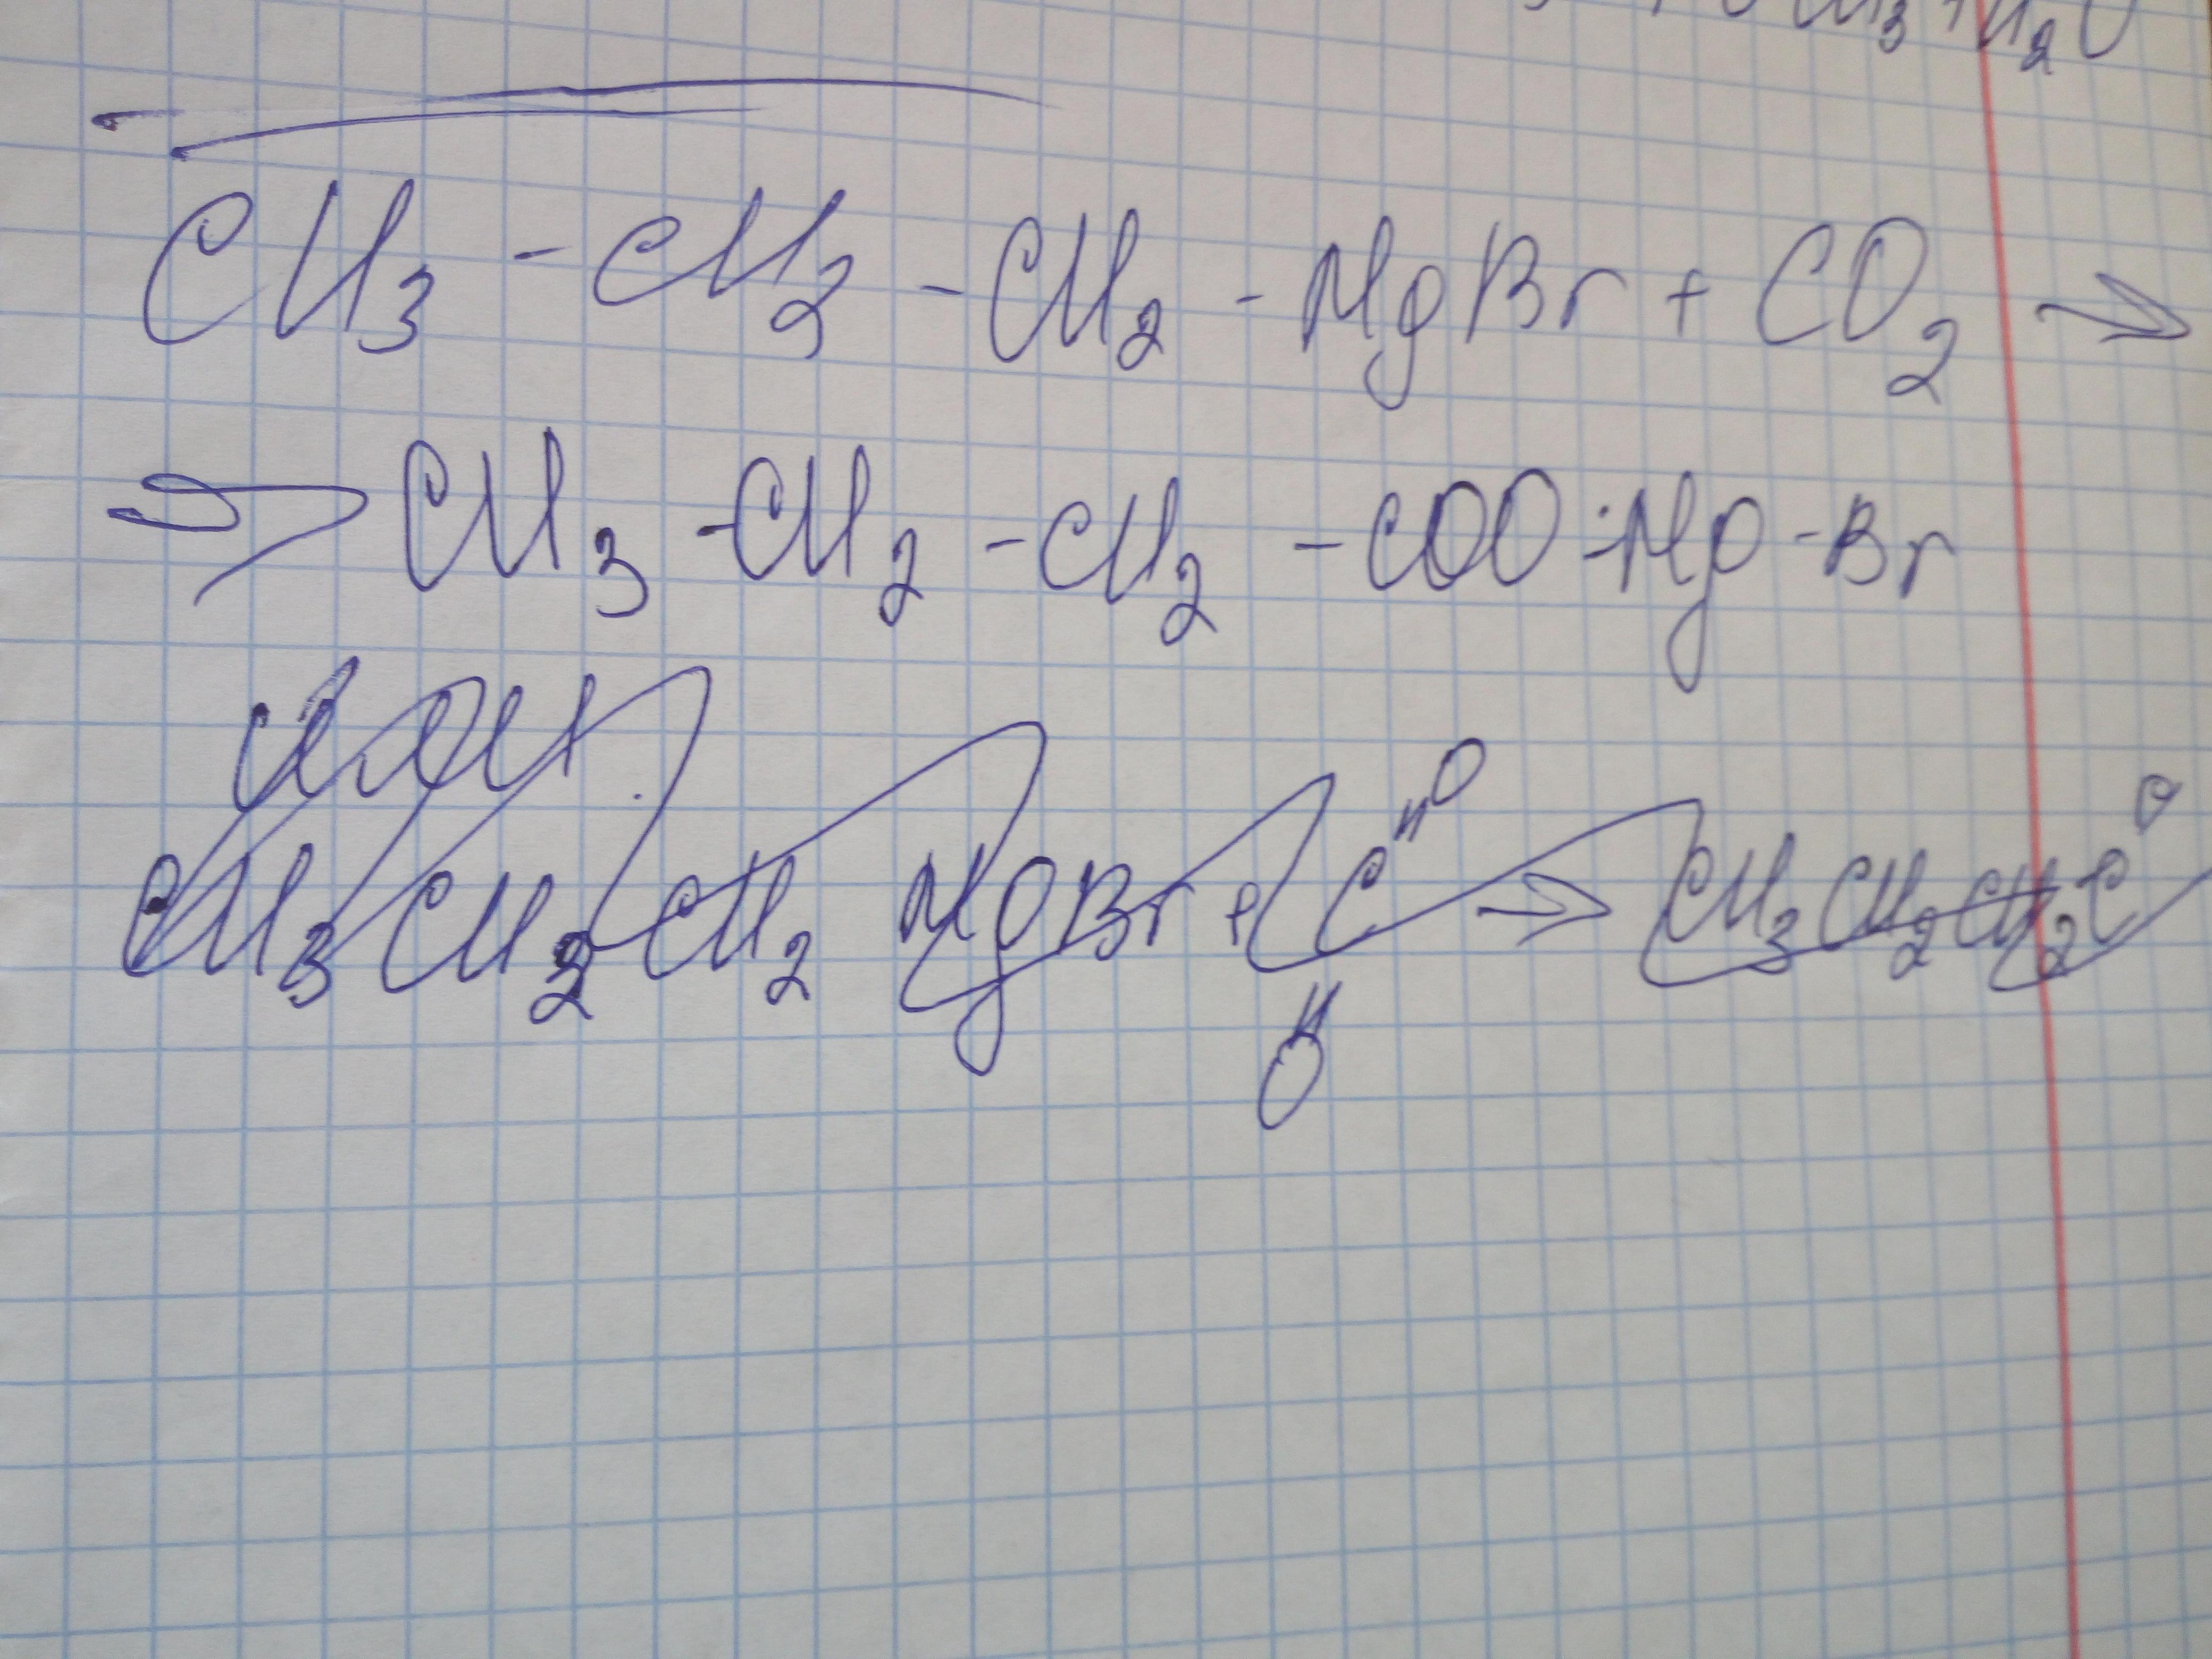 CH₃ + H₂O
CH₃ - CH₂ - CH₂ - MgBr + CO₂ →
⇒ CH₃ - CH₂ - CH₂ - COO - Mg - Br
CH₃ CH₂ CH₂ MgBr + C → CH₃ CH₂ CH₂ C